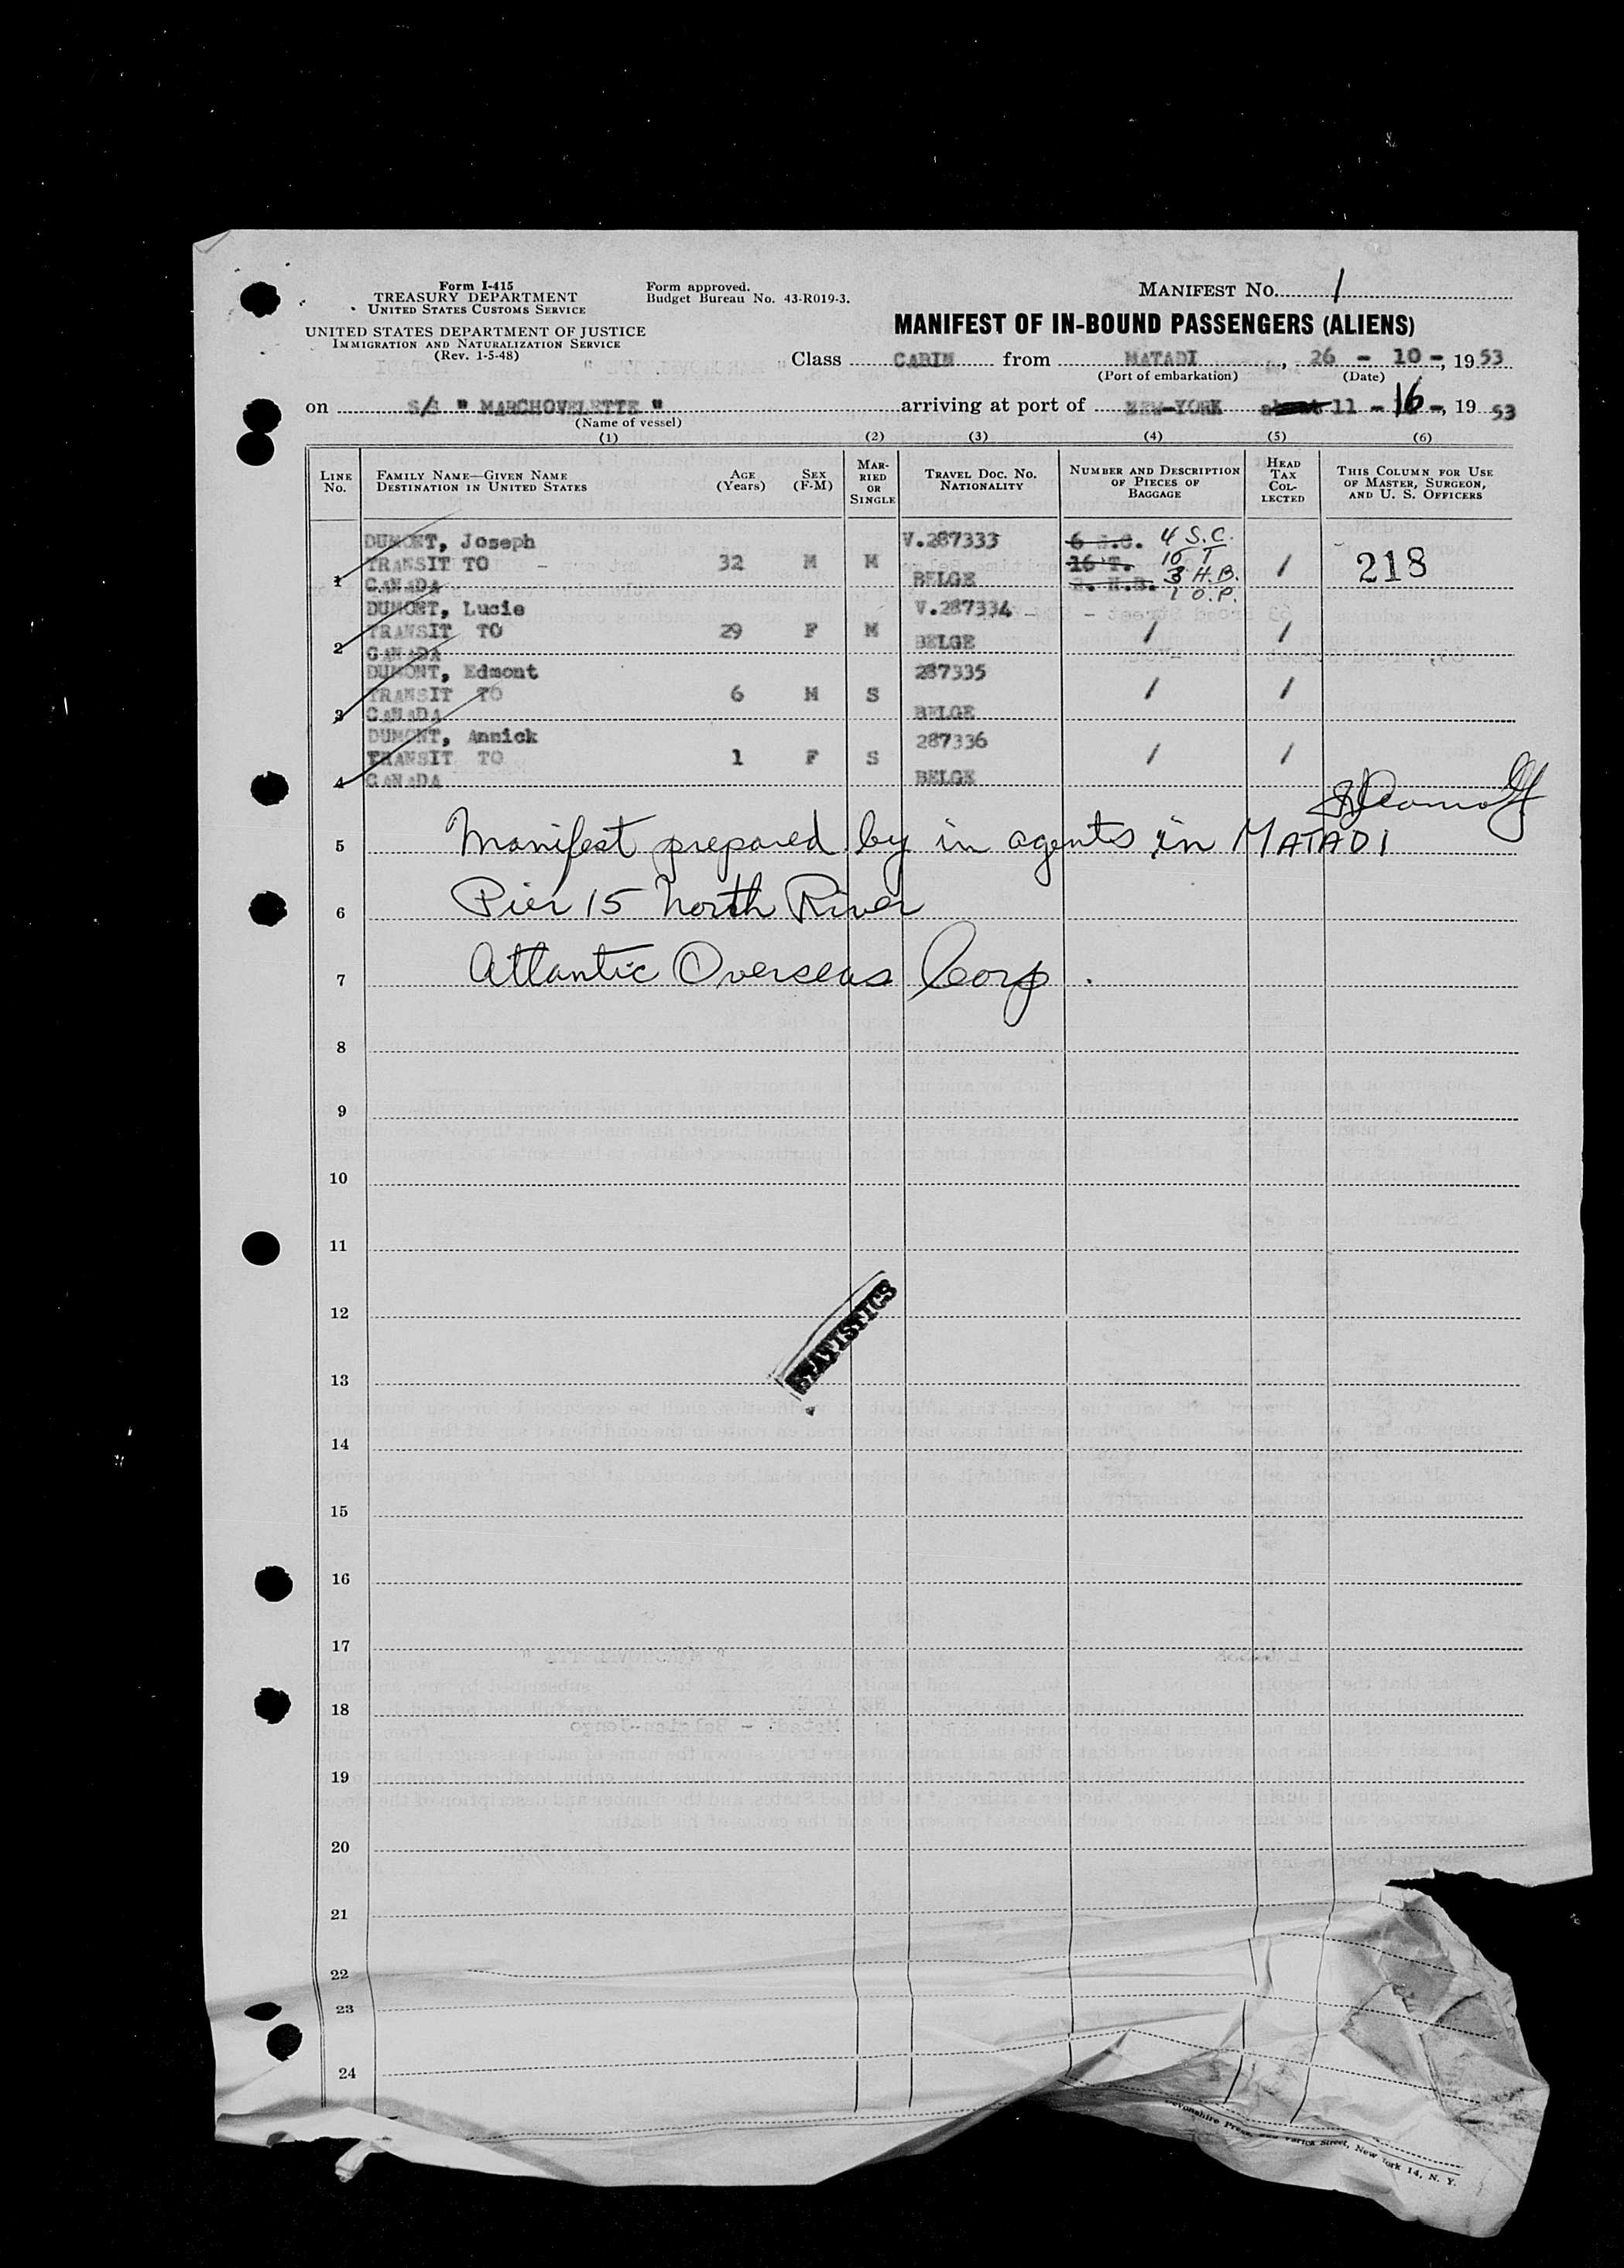 Form I-415
TREASURY DEPARTMENT
UNITED STATES CUSTOMS SERVICE
UNITED STATES DEPARTMENT OF JUSTICE
IMMIGRATION AND NATURALIZATION SERVICE
(Rev. 1-5-48)
Form approved.
Budget Bureau No. 43-R019-3.
MANIFEST NO. 1
MANIFEST OF IN-BOUND PASSENGERS (ALIENS)
Class CABIN from MATADI, 26 - 10 -, 1953
(Port of embarkation) (Date)
on S/S " MARCHOVELETTE " arriving at port of NEW-YORK about 11 - 16 -, 1953
(Name of vessel)
(1) (2) (3) (4) (5) (6)
LINE NO.
FAMILY NAME—GIVEN NAME
DESTINATION IN UNITED STATES
AGE (Years)
SEX (F-M)
MARRIED OR SINGLE
TRAVEL DOC. NO.
NATIONALITY
NUMBER AND DESCRIPTION OF PIECES OF BAGGAGE
HEAD TAX COLLECTED
THIS COLUMN FOR USE OF MASTER, SURGEON, AND U. S. OFFICERS
DUMONT, Joseph V.287333 6 S.C. 4 S.C.
TRANSIT TO - 32 M M 16 T. 10 T / 218
1 CANADA BELGE H.B. 3 H.B.
1 O.P.
DUMONT, Lucie V.287334 -
TRANSIT TO 29 F M / /
2 CANADA BELGE
DUMONT, Edmont 287335
TRANSIT TO 6 M S / /
3 CANADA BELGE
DUMONT, Annick 287336
TRANSIT TO 1 F S / /
4 CANADA BELGE
5 Manifest prepared by in agents in MATADI
6 Pier 15 North River
7 Atlantic Overseas Corp.
8
9
10
11
12
STATISTICS
13
14
15
16
17
18
19
20
21
22
23
24
Devonshire Press, Varick Street, New York 14, N. Y.